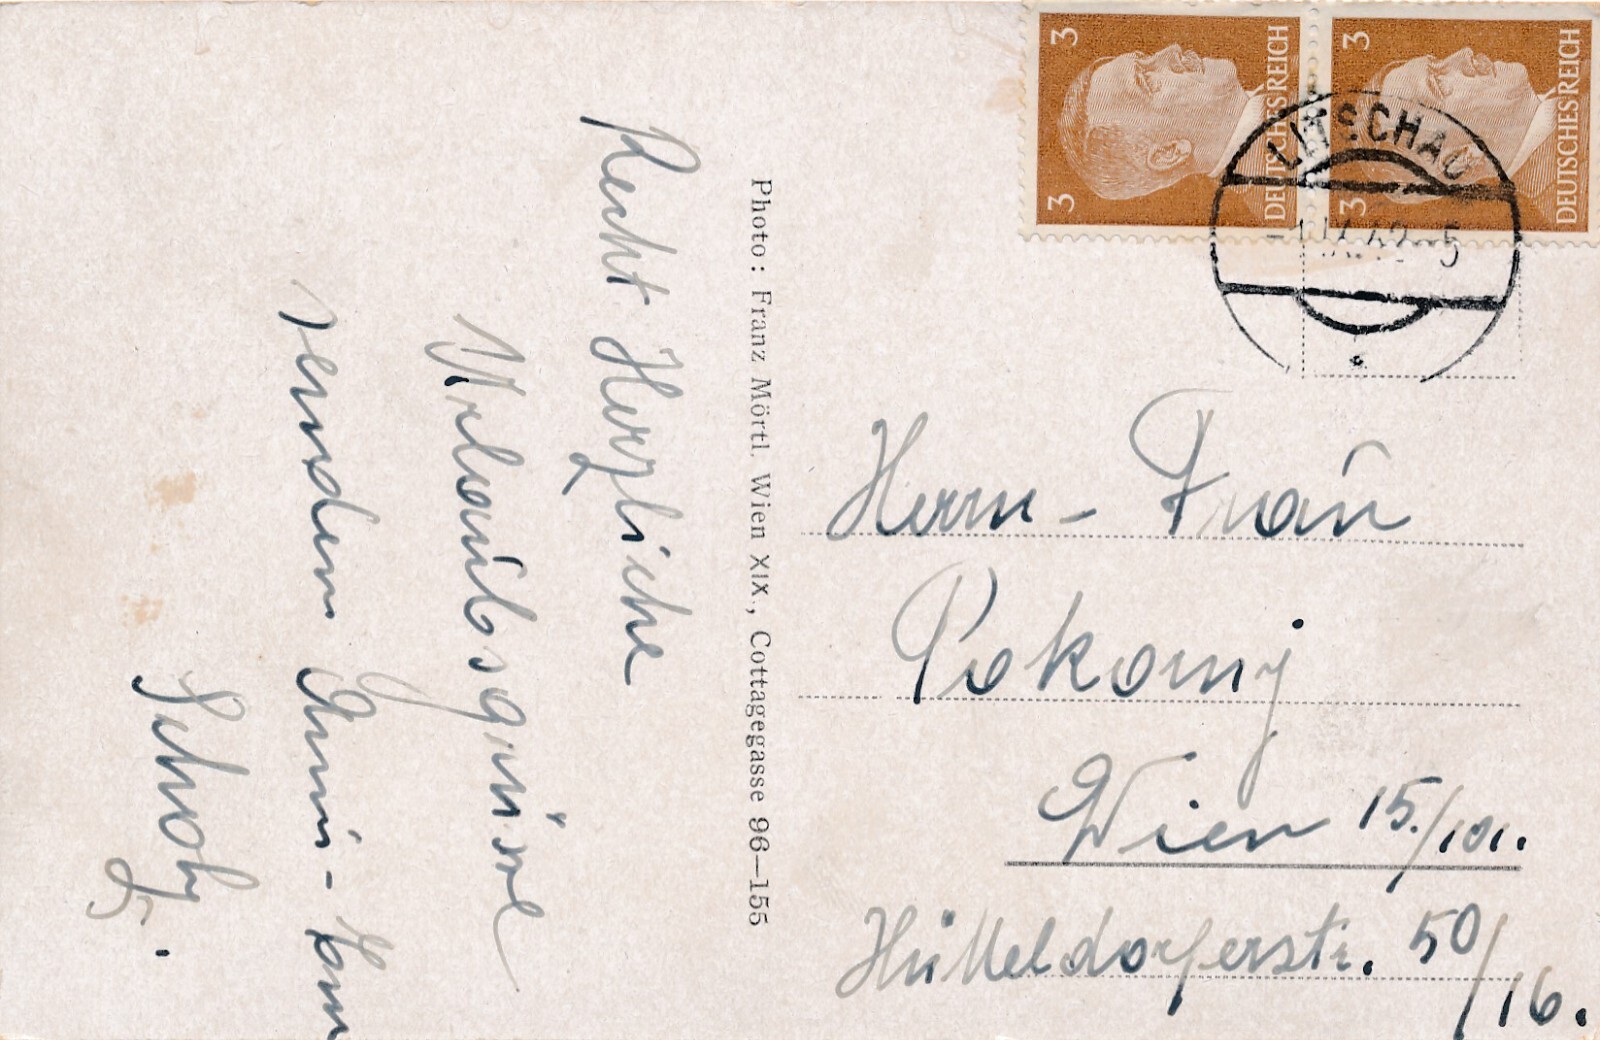 3 3
DEUTSCHES REICH
3 3
DEUTSCHES REICH
LITSCHAU
IX.42-5
Recht Herzliche
Urlaubsgrüsse
senden
Photo: Franz Mörtl. Wien XIX., Cottagegasse 96—155
Herrn - Frau
Pokorny
Wien 15./101.
Hütteldorferstr. 50/16.